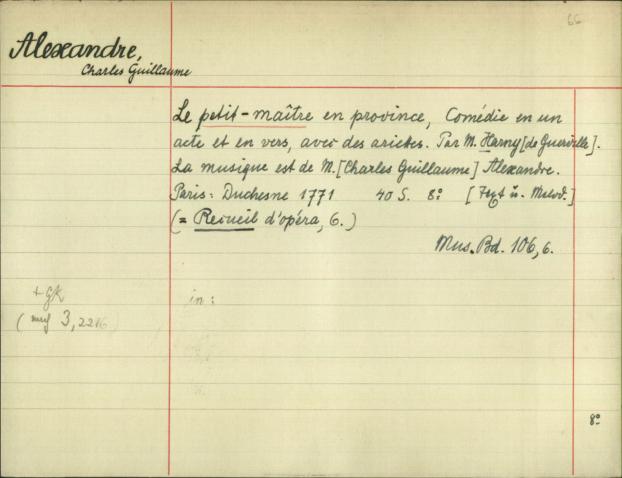 66
Alexandre,
Charles Guillaume
Le petit-maître en province, Comédie en un
acte et en vers, avec des ariettes. Par M. Harny [de Guerville].
La musique est de M. [Charles Guillaume] Alexandre.
Paris: Duchesne 1771 40 S. 8° [Text u. Melod.]
(= Recueil d'opéra, 6.)
Mus. Bd. 106,6.
+ GK
in:
( 3,2216)
8°